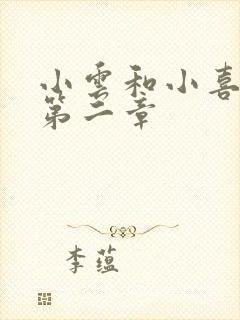 小雲和小喜
第二章
李蕴